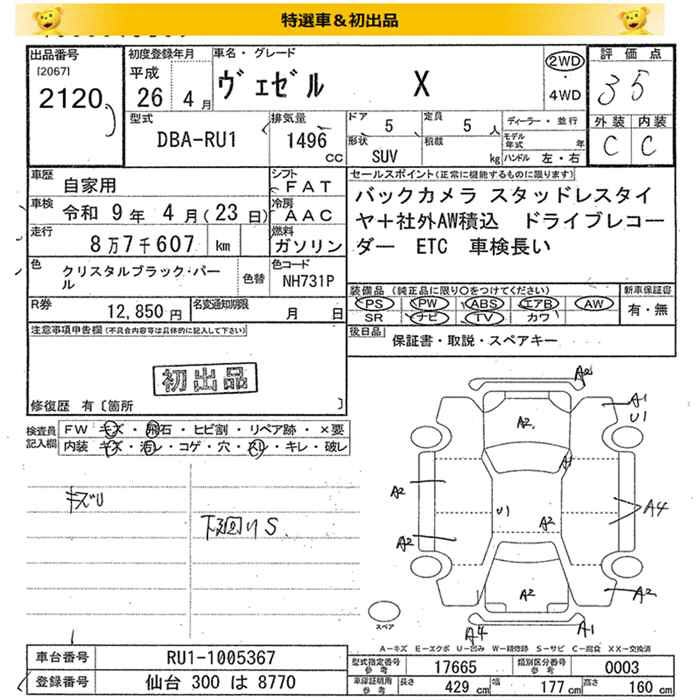 特選車＆初出品
出品番号 初度登録年月 車名・グレード 評価点
[2067] 平成 ヴェゼル X 2WD 35
2120 26 4月 4WD
型式 排気量 ドア 5 定員 5人 ディーラー・並行 外装 内装
DBA-RU1 1496 cc 形状 SUV 積載 kg モデル年式 年 ハンドル 左・右 C C
車歴 自家用 シフト FAT セールスポイント(正常に機能するものに限ります)
車検 令和 9年 4月(23日) 冷房 AAC バックカメラ スタッドレスタイ
走行 8万7千607 km 燃料 ガソリン ヤ＋社外AW積込 ドライブレコー
ダー ETC 車検長い
色 クリスタルブラック・パール 色替 色コード NH731P
装備品 (純正品に限り○をつけてください) 新車保証書
PS PW ABS エアB AW 有・無
SR ナビ TV カワ
R券 12,850円 名変通知期限 月 日
注意事項申告欄(不具合内容等は具体的に記入して下さい) 後日品 保証書・取説・スペアキー
初出品
修復歴 有〔箇所 〕
検査員記入欄 FW キズ・飛石・ヒビ割・リペア跡・×要
内装 キズ・汚レ・コゲ・穴・スレ・キレ・破レ
キズU
下廻りS
A2
A1
U1
A2
A1
A2
A4
U1
A2
A2
A2
A2
A4
A1
スペア
A-キズ E-エクボ U-凹み W-補修跡 S-サビ C-腐食 XX-交換済
車台番号 RU1-1005367 型式指定番号 参考 17665 類別区分番号 参考 0003
登録番号 仙台 300 は 8770 車庫証明用 参考 長さ 429 cm 幅 177 cm 高さ 160 cm